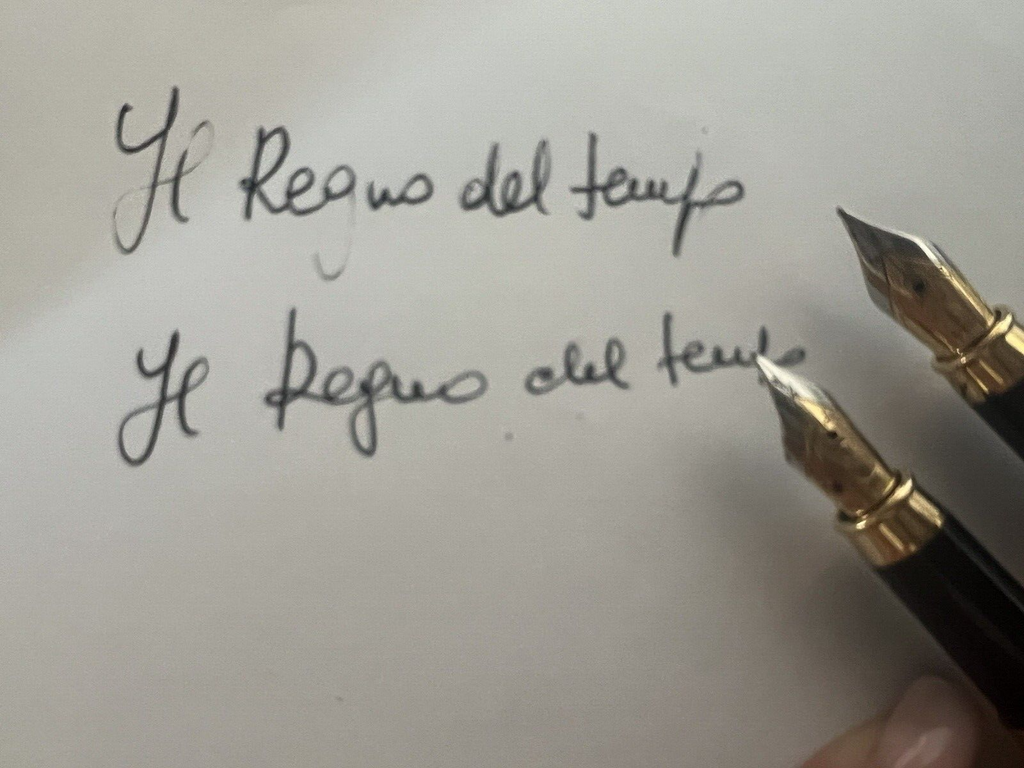 Il Regno del tempo
Il Regno del tempo